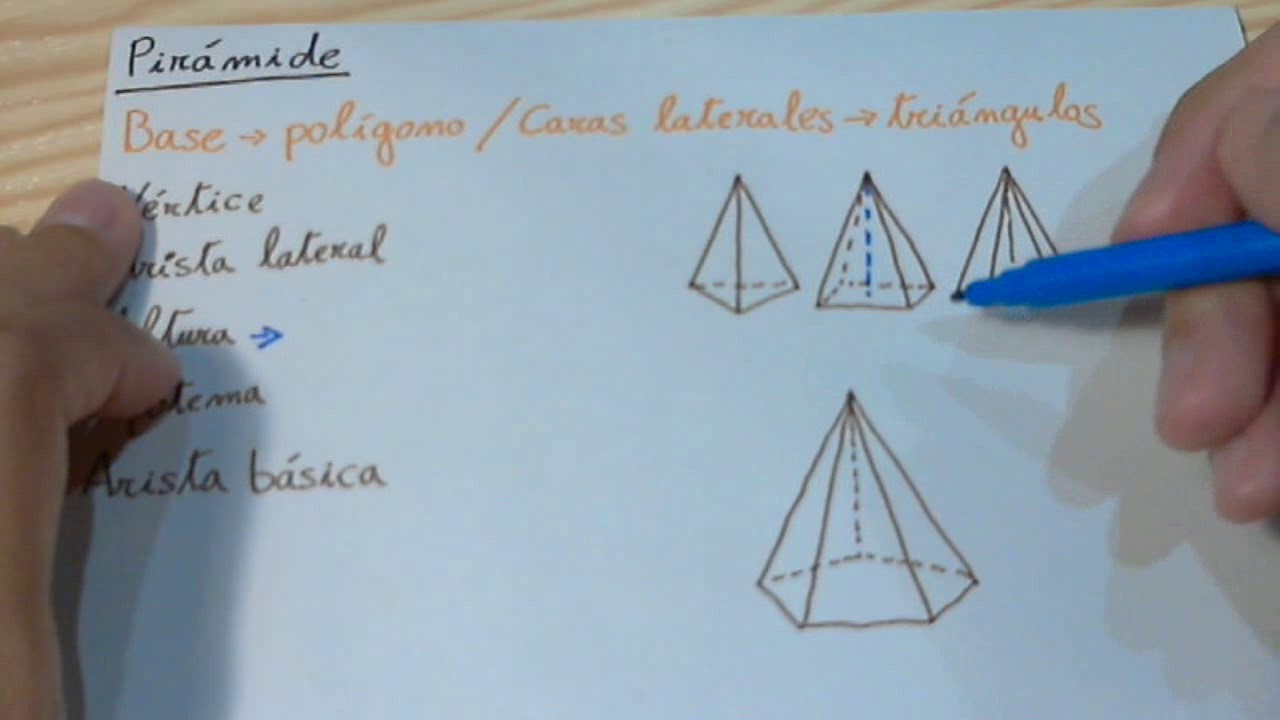 Pirámide
Base → polígono / Caras laterales → triángulos
Vértice
Arista lateral
Altura →
Apotema
Arista básica